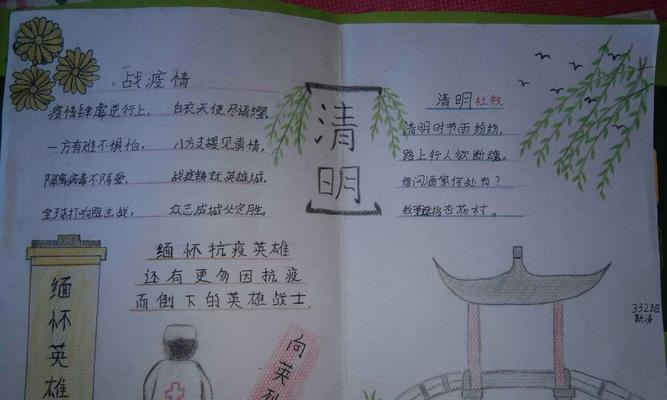 战疫情
疫情肆虐逆行上， 白衣天使尽语铿。
一方有难不惧怕， 八方支援见真情。
隔离病毒不隔爱， 战疫铸就英雄城。
全球打响阻击战， 众志成城必定胜。
缅怀抗疫英雄
还有更多因抗疫
而倒下的英雄战士.
缅怀英雄
向英烈
清明
清明 杜牧
清明时节雨纷纷，
路上行人欲断魂。
借问酒家何处有？
牧童遥指杏花村。
332班